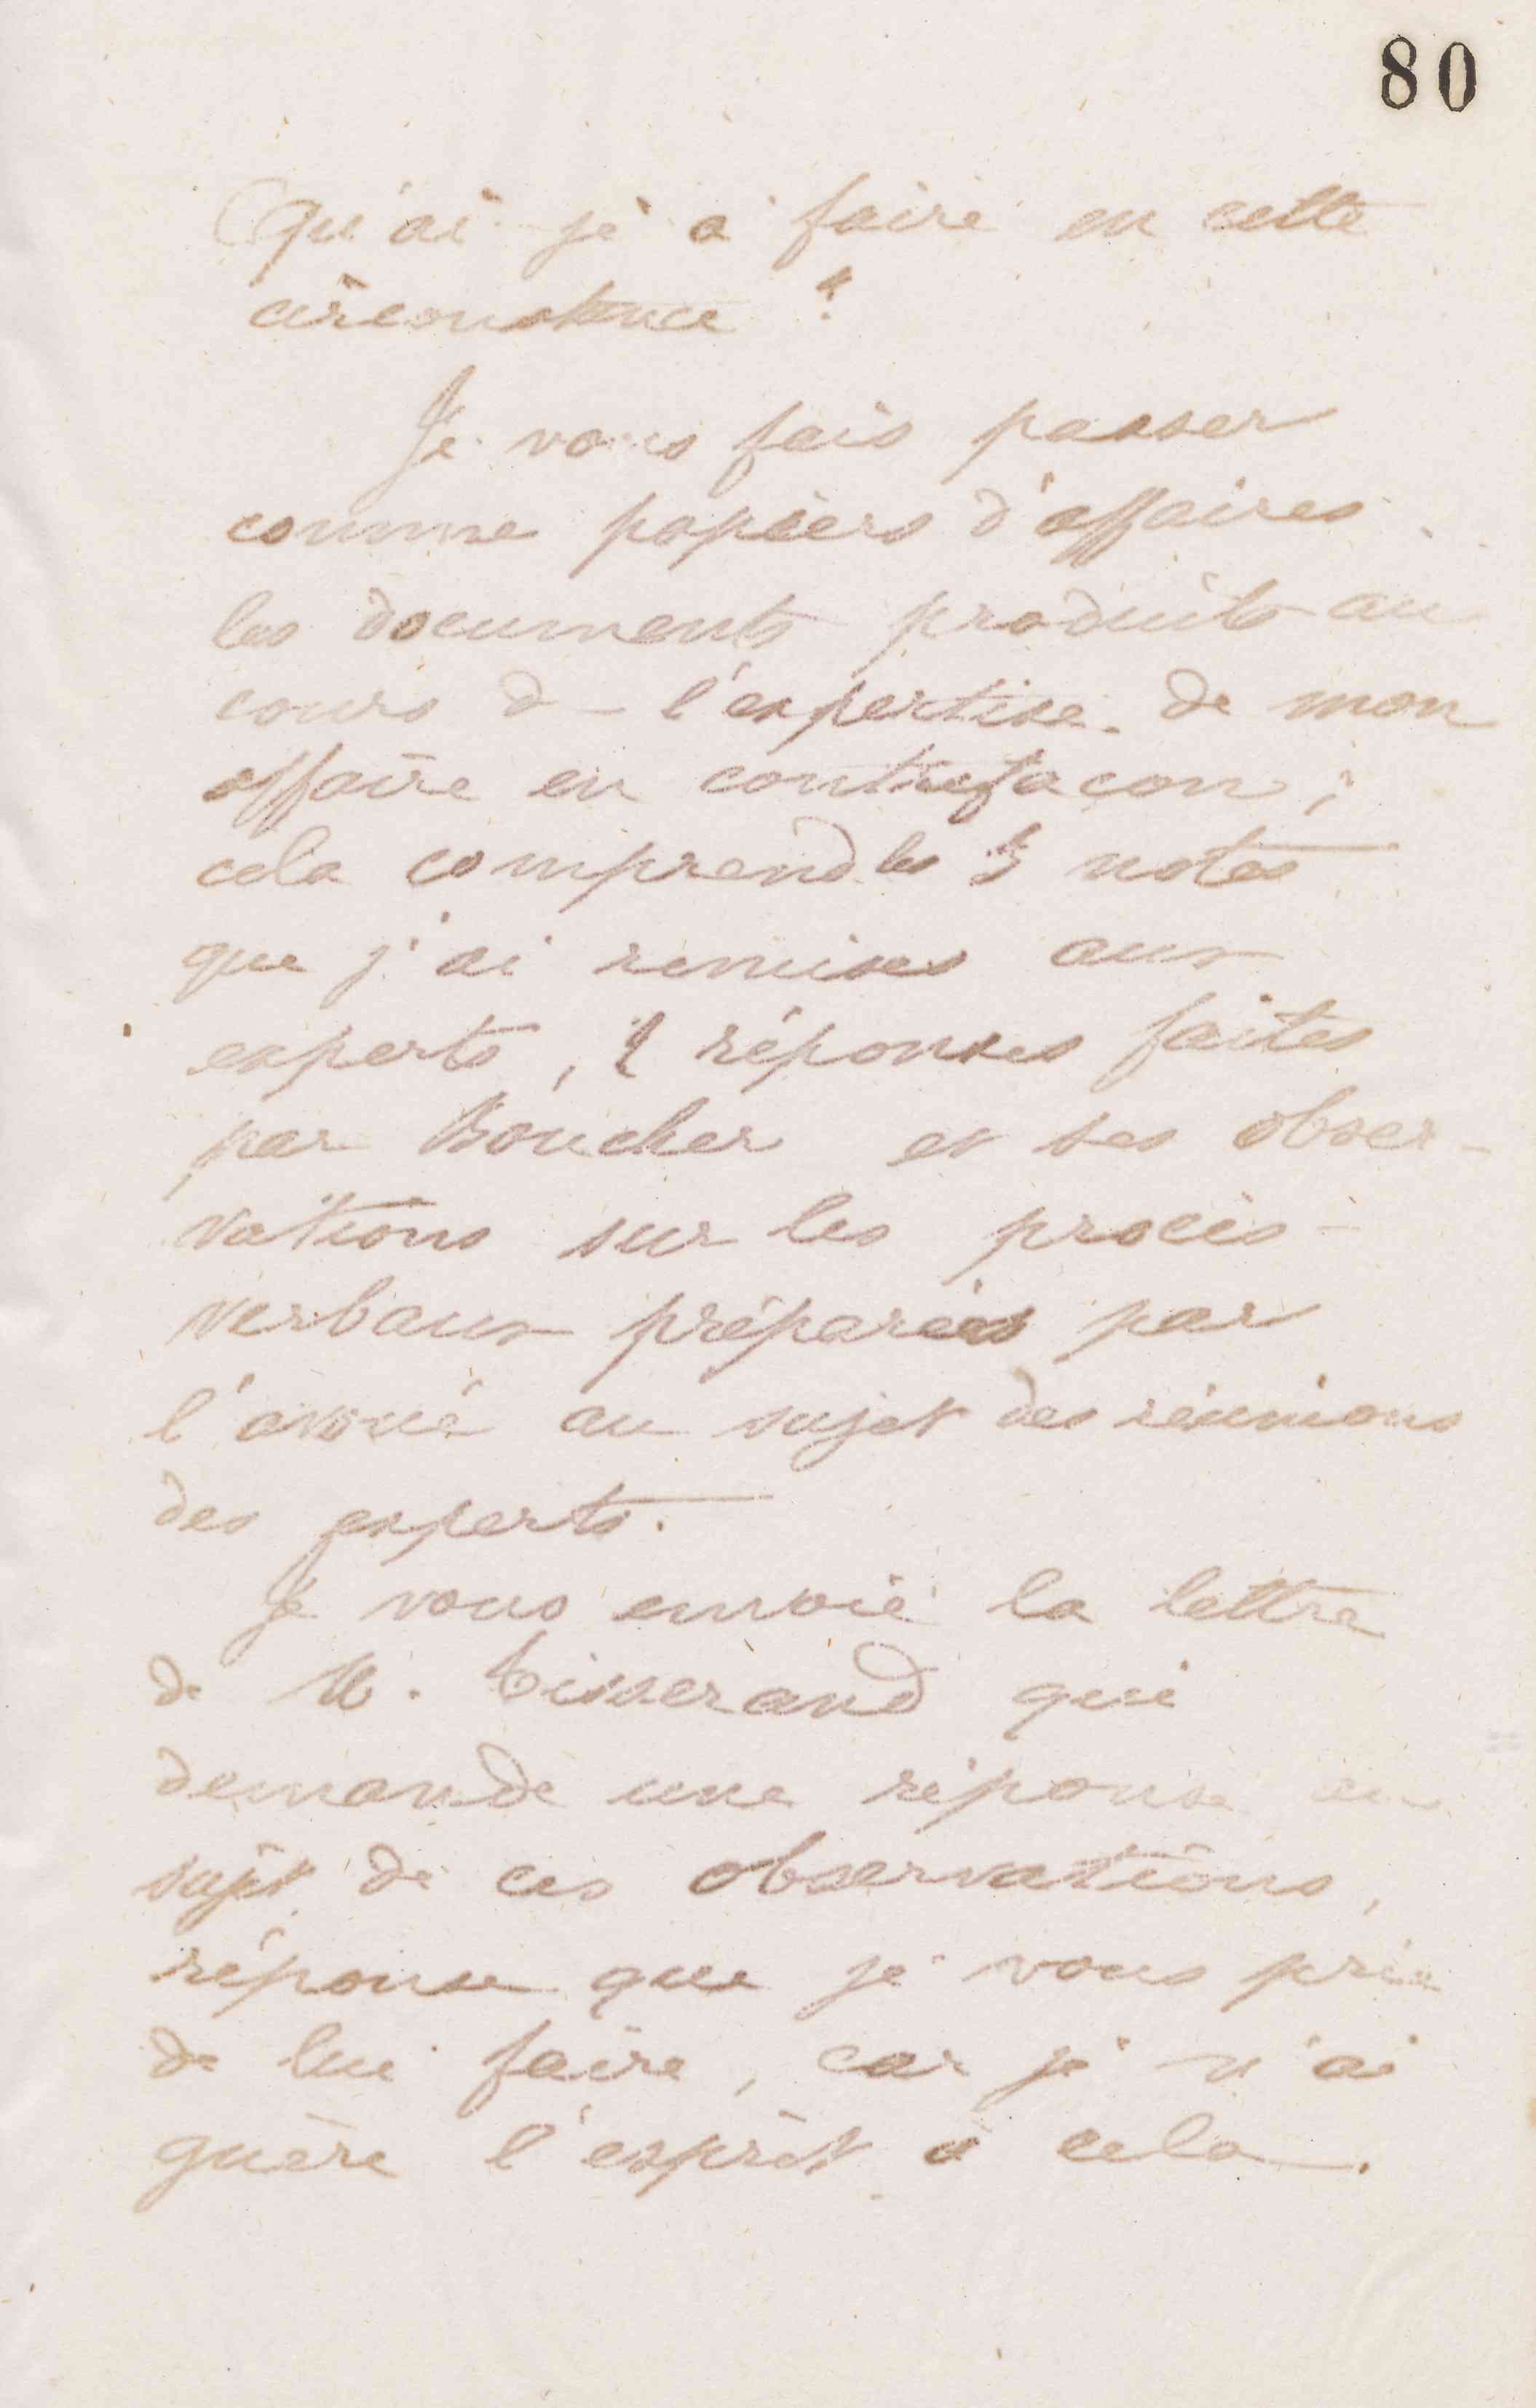 80
Qu'ai-je à faire en cette
circonstance ?
Je vous fais passer
comme papiers d'affaires
les documents produits au
cours de l'expertise de mon
affaire en contrefaçon ;
cela comprend les 3 notes
que j'ai remises aux
experts, 2 réponses faites
par Boucher et ses obser-
vations sur les procès-
verbaux préparés par
l'avoué au sujet des réunions
des experts.
Je vous envoie la lettre
de M. Tisserand qui
demande une réponse au
sujet de ces observations,
réponse que je vous prie
de lui faire, car je n'ai
guère l'esprit à cela.